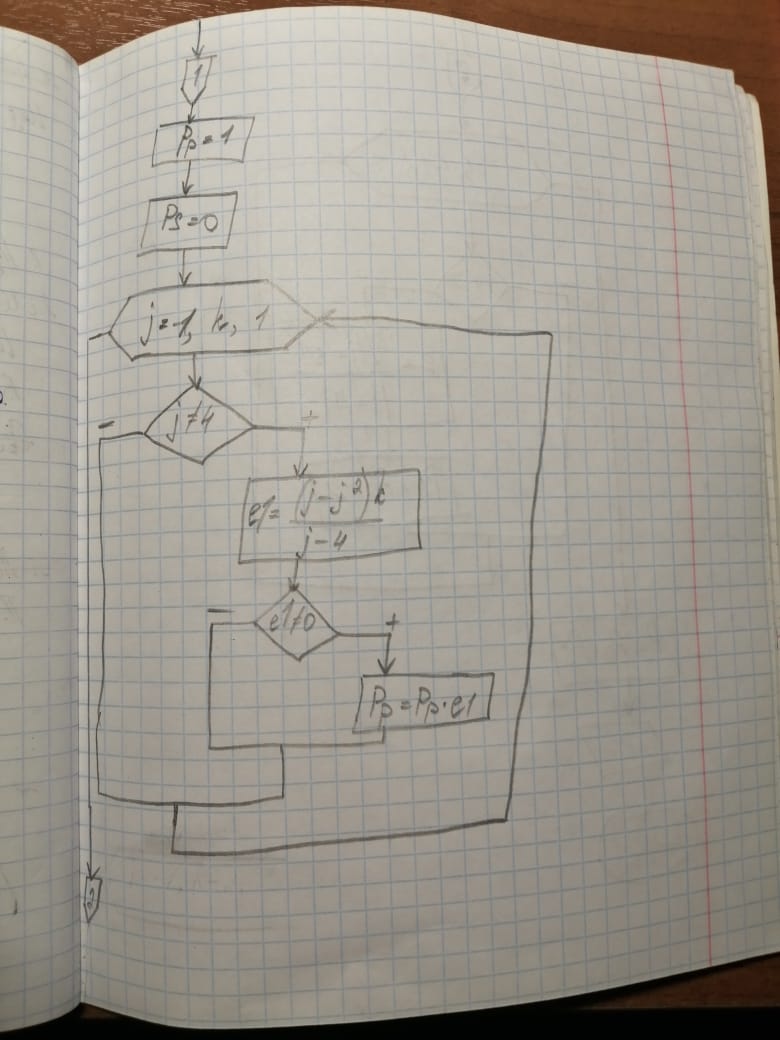 1
Pp = 1
PS = 0
j = 1, k, 1
- j≠4 +
e1 = (j - j²) k
j - 4
- e1≠0 +
Pp = Pp · e1
2